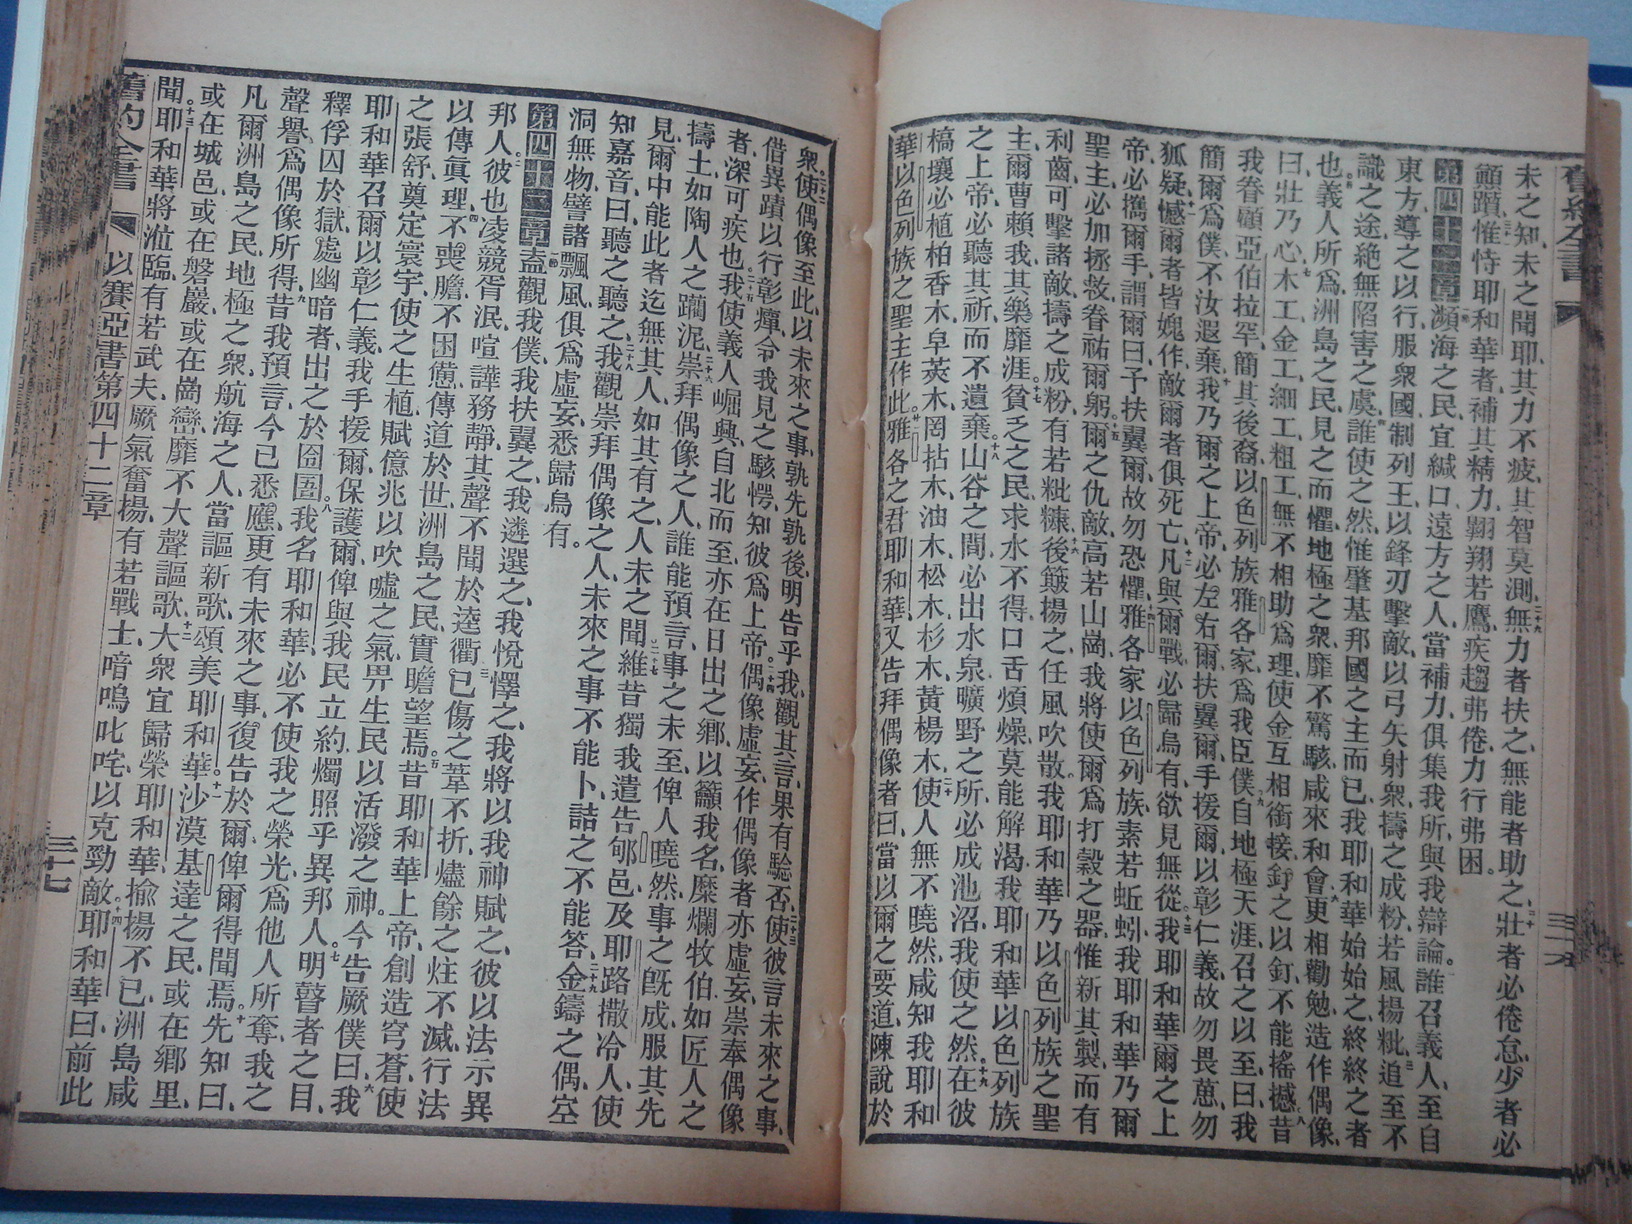 舊約全書
三十六
未之知、未之聞耶、其力不疲、其智莫測、二十九無力者扶之、無能者助之、三十壯者必倦怠、少者必
顚躓、三十一惟恃耶和華者、補其精力、翺翔若鷹、疾趨弗倦、力行弗困。
第四十一章一節瀕海之民、宜緘口、遠方之人、當補力、俱集我所、與我辯論。二誰召義人、至自
東方、導之以行、服衆國、制列王、以鋒刃擊敵、以弓矢射衆、擣之成粉、若風揚粃、三追至不
識之途、絶無陷害之虞、四誰使之然、惟肇基邦國之主而已、我耶和華始始之、終終之者
也、五義人所爲、洲島之民、見之而懼、地極之衆、靡不驚駭、咸來和會、六更相勸勉、造作偶像、
曰、壯乃心、七木工金工、細工粗工、無不相助、爲理使金互相銜接、釘之以釘、不能搖撼、八昔
我眷顧亞伯拉罕、簡其後裔、以色列族、雅各家、爲我臣僕、九自地極天涯、召之以至、曰、我
簡爾爲僕、不汝遐棄、十我乃爾之上帝、必左右爾、扶翼爾、手援爾、以彰仁義、故勿畏葸、勿
狐疑、十一憾爾者皆媿怍、敵爾者俱死亡、十二凡與爾戰、必歸烏有、欲見無從、十三我耶和華爾之上
帝、必攜爾手、謂爾曰、予扶翼爾、故勿恐懼、十四雅各家、以色列族、素若蚯蚓、我耶和華乃爾
聖主、必加拯救、眷祐爾躬。十五爾之仇敵、高若山崗、我將使爾爲打穀之器、惟新其製、而有
利齒、可擊諸敵、擣之成粉、有若粃糠、十六後簸揚之、任風吹散。我耶和華乃以色列族之聖
主、爾曹賴我、其樂靡涯。十七貧乏之民、求水不得、口舌煩燥、莫能解渴、我耶和華以色列族
之上帝、必聽其祈、而不遺棄。十八山谷之間、必出水泉、曠野之所、必成池沼、我使之然。十九在彼
槁壤、必植柏香木、阜莢木、岡拈木、油木、松木、杉木、黃楊木、二十使人無不曉然、咸知我耶和
華以色列族之聖主作此、廿一雅各之君、耶和華、又告拜偶像者曰、當以爾之要道、陳說於
衆、二十二使偶像至此、以未來之事、孰先孰後、明告乎我、觀其言果有驗否、二十三使彼言未來之事、
借異蹟以行彰癉、令我見之駭愕、知彼爲上帝。二十四偶像虛妄、作偶像者亦虛妄、崇奉偶像
者、深可疾也。二十五我使義人崛興、自北而至、亦在日出之鄕、以籲我名、糜爛牧伯、如匠人之
擣土、如陶人之躪泥。二十六崇拜偶像之人、誰能預言、事之未至、俾人曉然、事之旣成、服其先
見、爾中能此者、迄無其人、如其有之、人未之聞、二十七維昔獨我遣告郇邑、及耶路撒冷人、使
知嘉音曰、聽之聽之、二十八我觀崇拜偶像之人、未來之事不能卜、詰之不能答、二十九金鑄之偶、空
洞無物、譬諸飄風、俱爲虛妄、悉歸烏有。
第四十二章一節盍觀我僕、我扶翼之、我遴選之、我悅懌之、我將以我神賦之、彼以法示異
邦人、二彼也凌競胥泯、喧譁務靜、其聲不聞於逵衢、三已傷之葦不折、燼餘之炷不滅、行法
以傳眞理、四不喪膽、不困憊、傳道於世、洲島之民、實瞻望焉。五昔耶和華上帝、創造穹蒼、使
之張舒、奠定寰宇、使之生植、賦億兆以吹噓之氣、畀生民以活潑之神。今告厥僕曰、六我
耶和華召爾以彰仁義、我手援爾、保護爾、俾與我民立約、燭照乎異邦人。七明瞽者之目、
釋俘囚於獄、處幽暗者、出之於囹圄。八我名耶和華、必不使我之榮光、爲他人所奪、我之
聲譽、爲偶像所得。九昔我預言、今已悉應、更有未來之事、復告於爾、俾爾得聞焉。十先知曰、
凡爾洲島之民、地極之衆、航海之人、當謳新歌、頌美耶和華。十一沙漠基達之民、或在鄕里、
或在城邑、或在磐巖、或在崗巒、靡不大聲謳歌、十二大衆宜歸榮耶和華、揄揚不已、洲島咸
聞。十三耶和華將涖臨、有若武夫、厥氣奮揚、有若戰士、喑嗚叱咤、以克勁敵。十四耶和華曰、前此
舊約全書
以賽亞書第四十二章
三十七